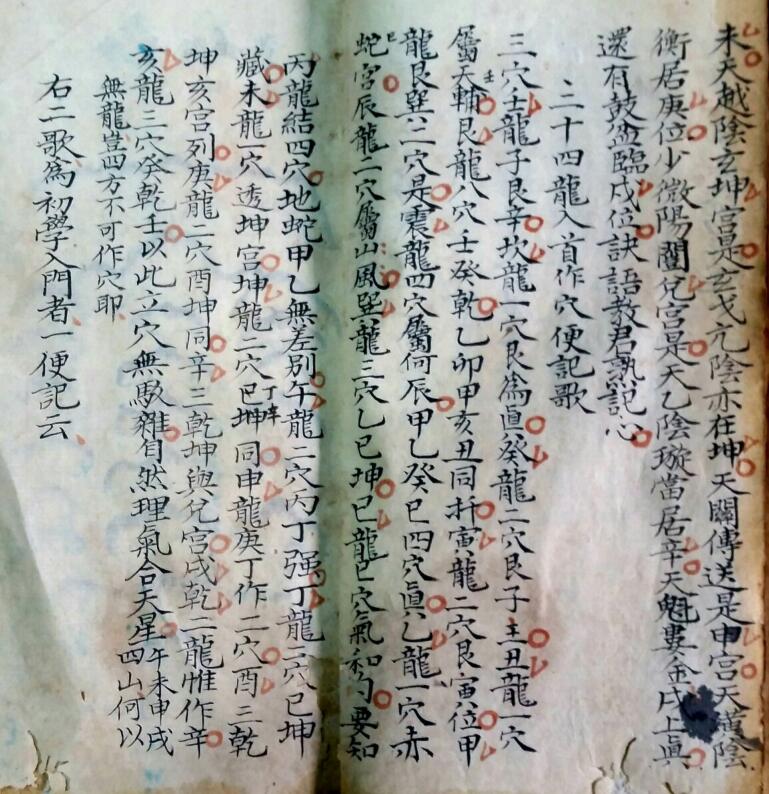 未天越陰玄坤宮是玄戈亢陰亦在坤天關傳送是申宮天陰
衡居庚位少微陽闔兌宮是天乙陰璇當居辛天魁婁金戌上興
還有鼓盆臨戌位訣語教君熟記心
二十四龍入首作穴便記歌
三穴壬龍子艮辛坎龍一穴艮為真癸龍二穴艮子壬丑龍一穴
屬天輔艮龍八穴壬癸乾乙卯甲亥丑同扦寅龍二穴艮寅位甲
龍艮巽二穴是震龍四穴屬何辰甲乙癸巳四穴真乙龍一穴赤
蛇宮辰龍二穴屬山風巽龍三穴乙巳坤巳龍巳穴氣和勻要知
丙龍結四穴地蛇甲乙無差別午龍二穴丙丁强丁龍二穴巳坤
藏未龍一穴透坤宮坤龍二穴巳坤丁辛同申龍庚丁作二穴酉三乾
坤亥宮列庚龍二穴酉坤同辛三乾坤與兌宮戌乾二龍惟作辛
亥龍三穴癸乾壬以此立穴無駁雜自然理氣合天星午未申戌四山何以
無龍豈四方不可作穴耶
右二歌為初學入門者一便記云